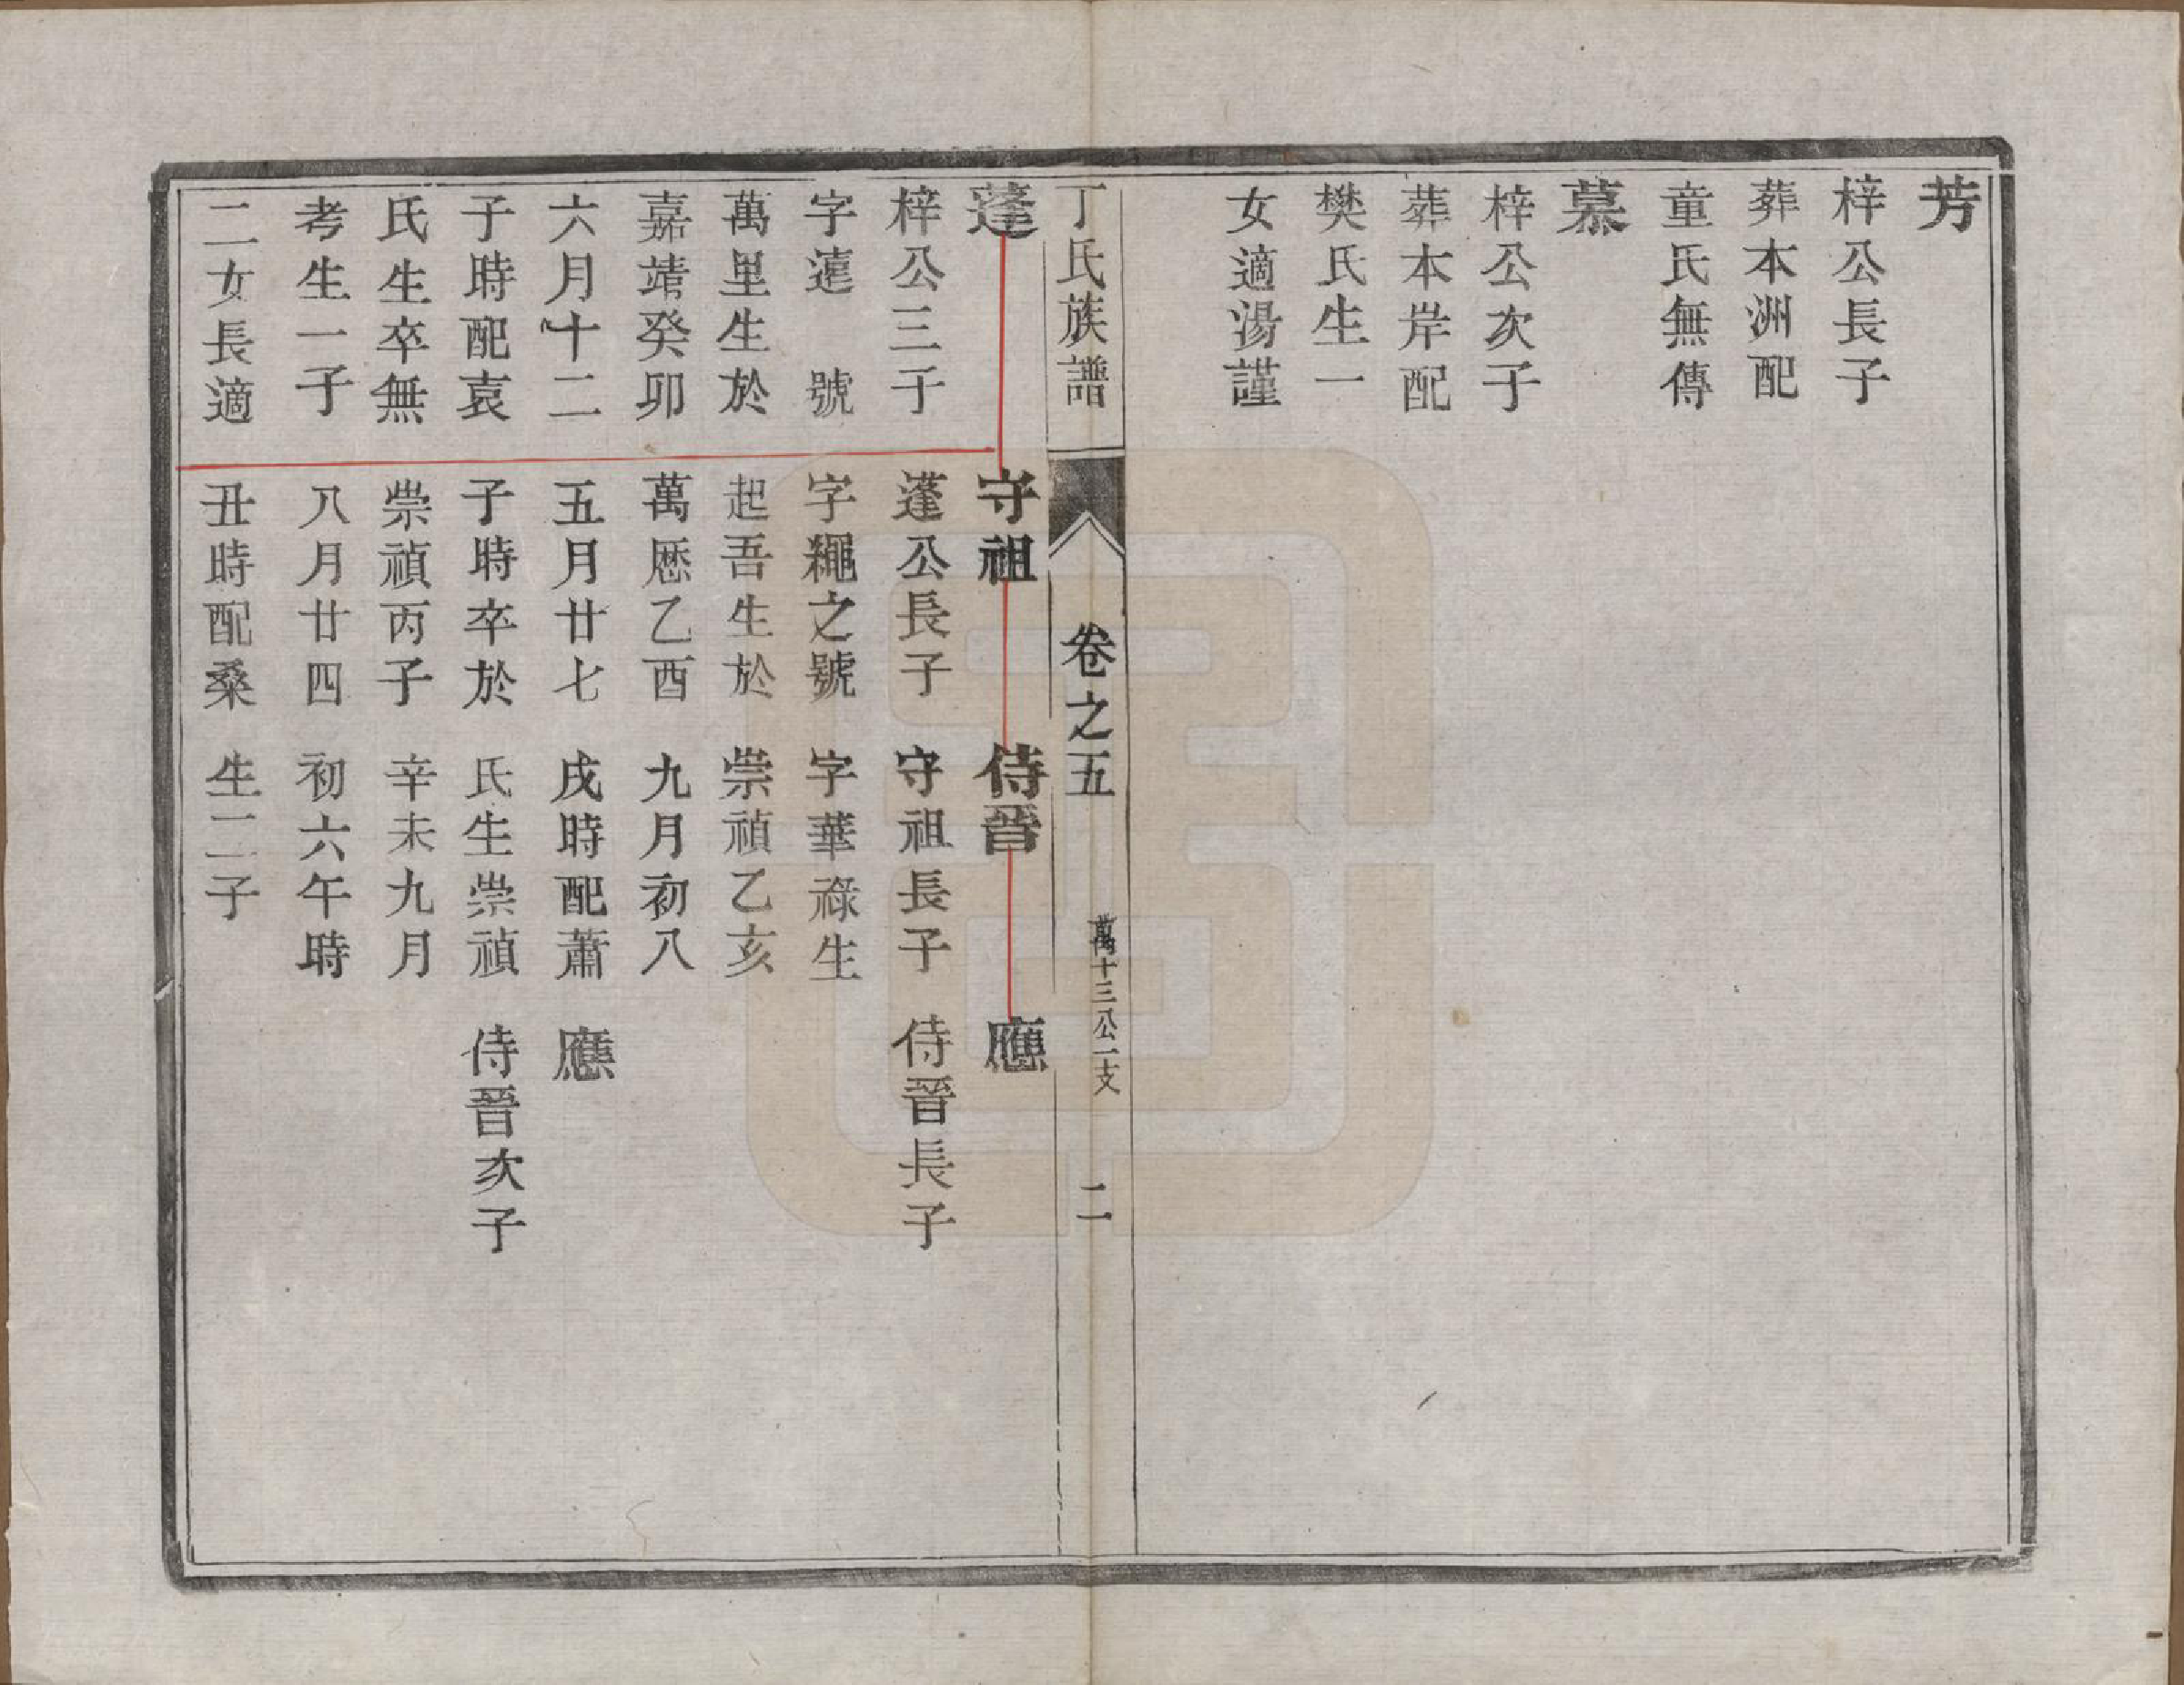 芳
梓公長子
葬本洲配
童氏無傳
慕
梓公次子
葬本岸配
樊氏生一
女適湯謹
丁氏族譜
卷之五
萬十三公二支
二
蓬
梓公三子
字蓮　號
萬里生於
嘉靖癸卯
六月十二
子時配袁
氏生卒無
考生一子
二女長適
守祖
蓬公長子
字繩之號
起吾生於
萬厯乙酉
五月廿七
子時卒於
崇禎丙子
八月廿四
丑時配桑
侍晉
守祖長子
字華祿生
崇禎乙亥
九月初八
戌時配蕭
氏生崇禎
辛未九月
初六午時
生二子
應
侍晉長子
應
侍晉次子